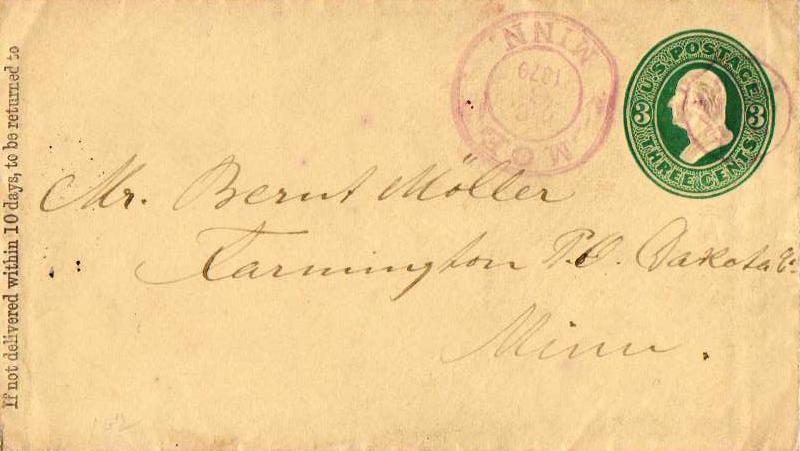 If not delivered within 10 days, to be returned to
MOE
MINN.
1879
U.S. POSTAGE
3 3
THREE CENTS
Mr. Bernt Möller
Farmington P.O. Dakota Co.
Minn.